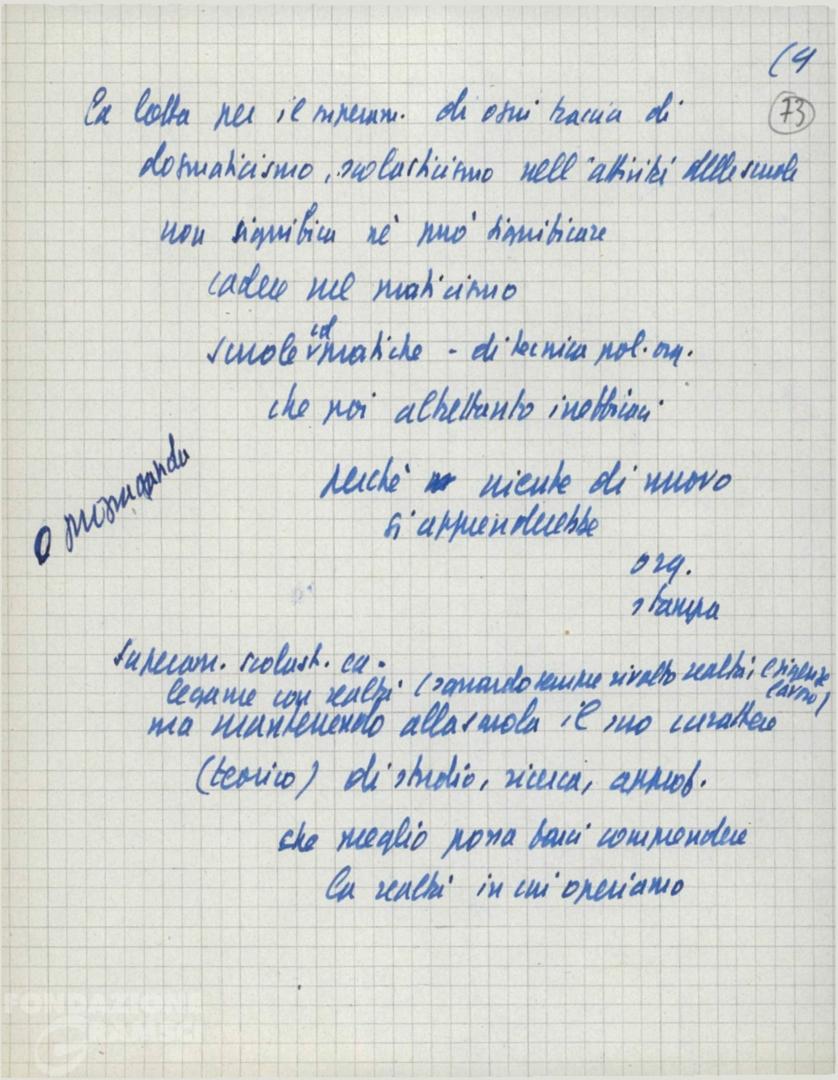 (9
73
La lotta per il superam. di ogni traccia di
dogmaticismo, scolasticismo nell'attività delle scuole
non significa nè può significare
cadere nel praticismo
scuole matiche - di tecnica pol. org.
che poi altrettanto
perchè niente di nuovo
si apprenderebbe
o propaganda
org.
stampa
Superam. scolast. ca.
legame con realtà (sguardo sempre rivolto realtà, esigenze
lavoro)
ma mantenendo alla scuola il suo carattere
(teorico) di studio, ricerca, approf.
che meglio possa farci comprendere
la realtà in cui operiamo
FONDAZIONE
GRAMSCI